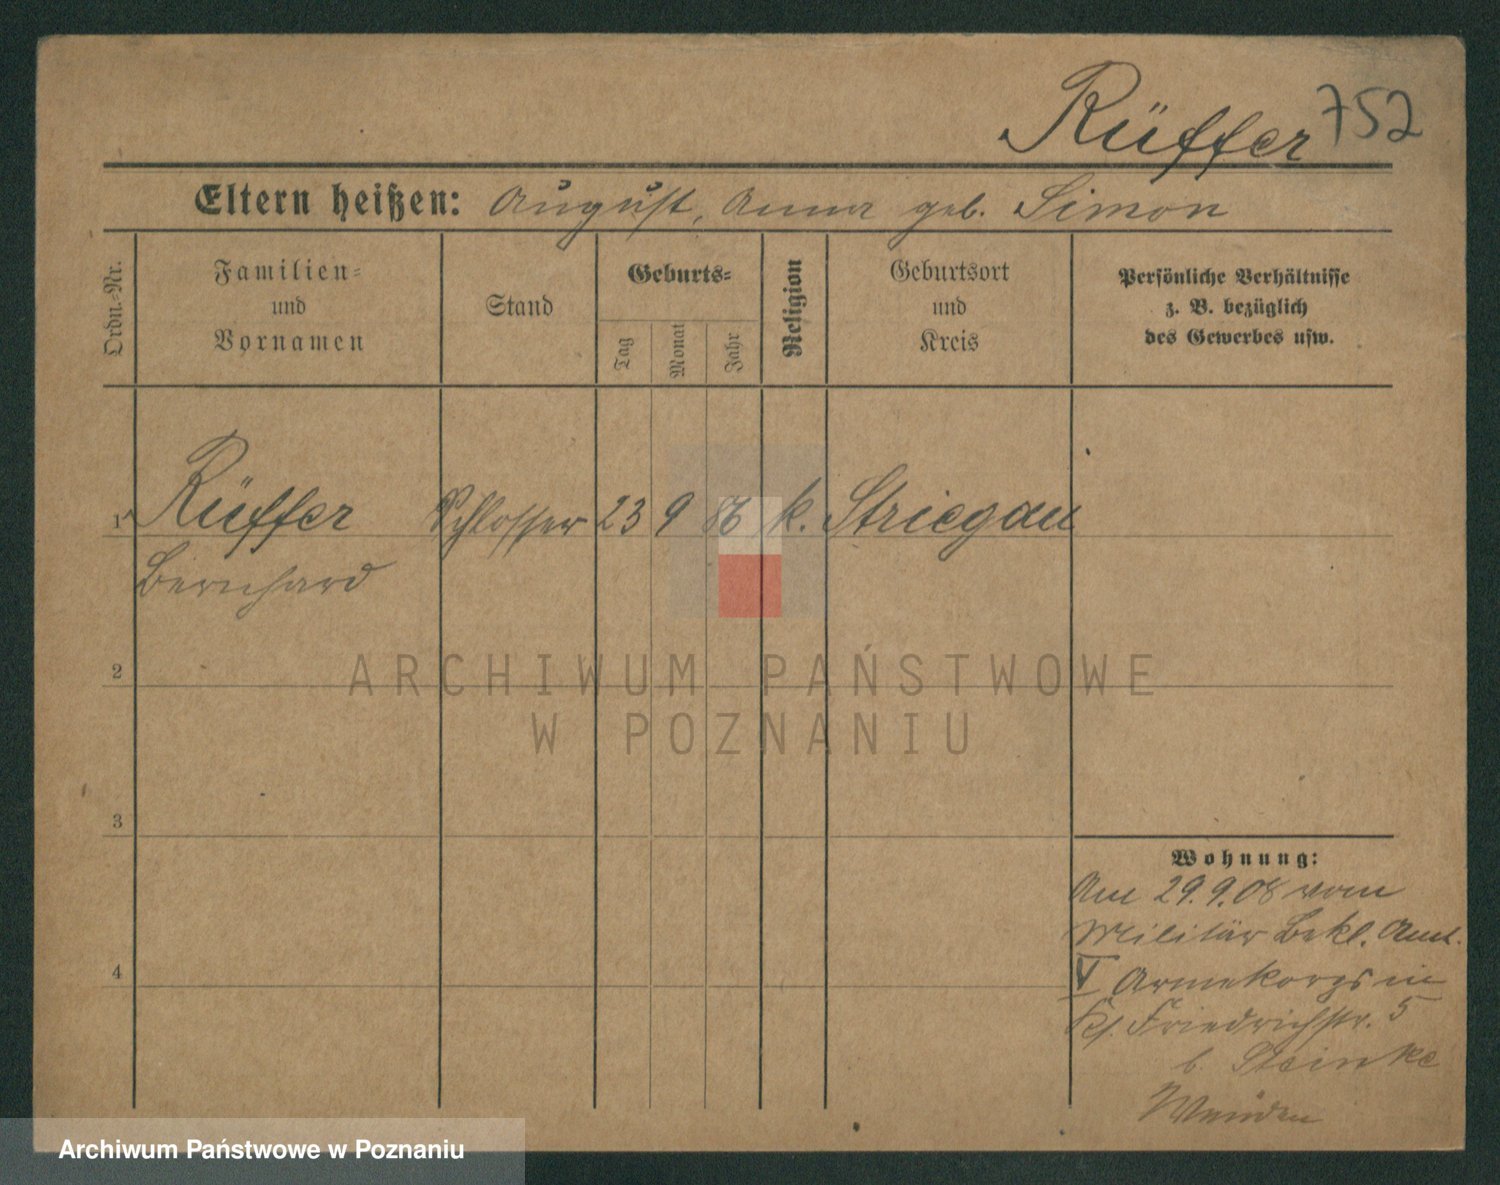 Rüffer 752
Eltern heißen: August, Anna geb. Simon
Ordn.-Nr.
Familien-
und
Vornamen
Stand
Geburts-
Tag
Monat
Jahr
Religion
Geburtsort
und
Kreis
Persönliche Verhältnisse
z. B. bezüglich
des Gewerbes usw.
1 Rüffer Schlosser 23 9 86 k. Striegau
Bernhard
2
3
4
Wohnung:
Am 29.9.08 vom
Militär Bekl. Amt.
V Armeekorps in
Friedrichstr. 5
b. Steinke
ARCHIWUM PAŃSTWOWE
W POZNANIU
Archiwum Państwowe w Poznaniu